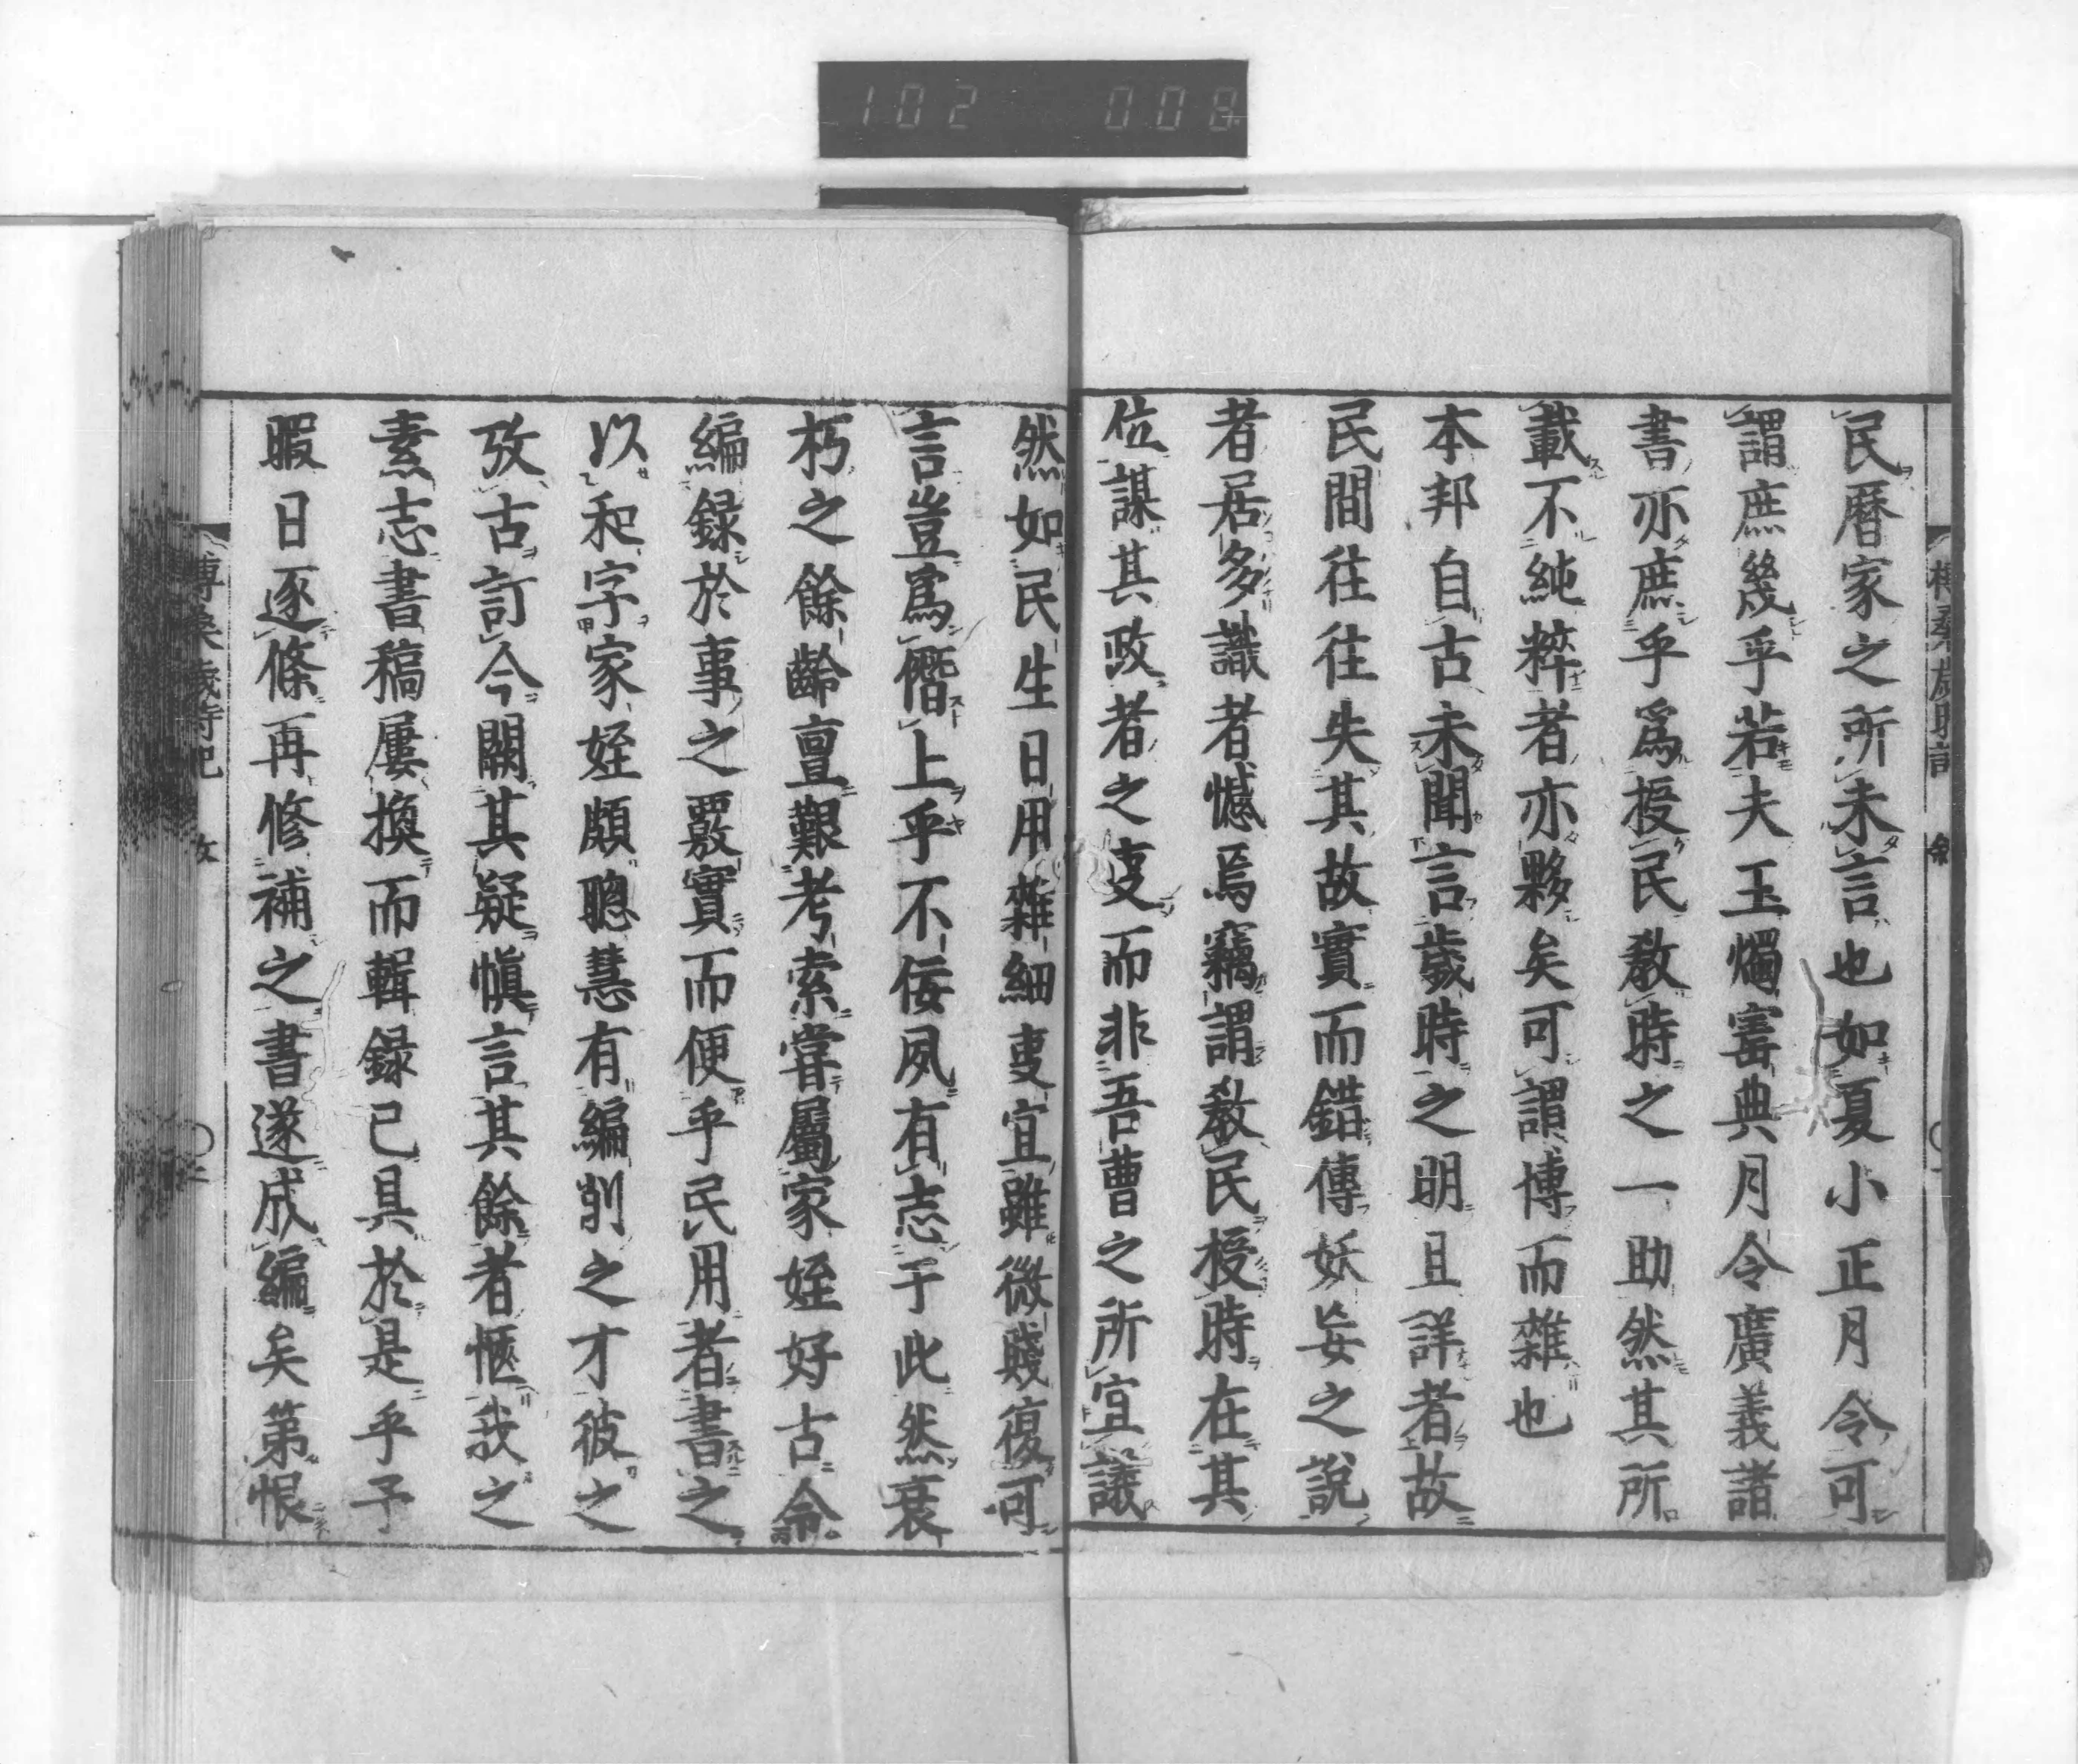 102 008
民曆家之所未言也如夏小正月令可
謂庶幾乎若夫玉燭寶典月令廣義諸
書亦庶乎爲授民教時之一助然其所
載不純粹者亦夥矣可謂博而雜也
本邦自古未聞言歲時之明且詳者故
民間往往失其故實而錯傳妖妄之說
者居多識者憾焉竊謂教民授時在其
位謀其政者之叓而非吾曹之所宜議
然如民生日用雜細叓宜雖微賤復可
言豈爲僭上乎不佞夙有志于此然衰
朽之餘齡亶艱考索甞屬家姪好古令
編録於事之覈實而便乎民用者書之
以和字家姪頗聰慧有編削之才彼之
攷古訂今闕其疑愼言其餘者愜我之
素志書稿屢換而輯録已具於是乎予
暇日逐條再修補之書遂成編矣第恨